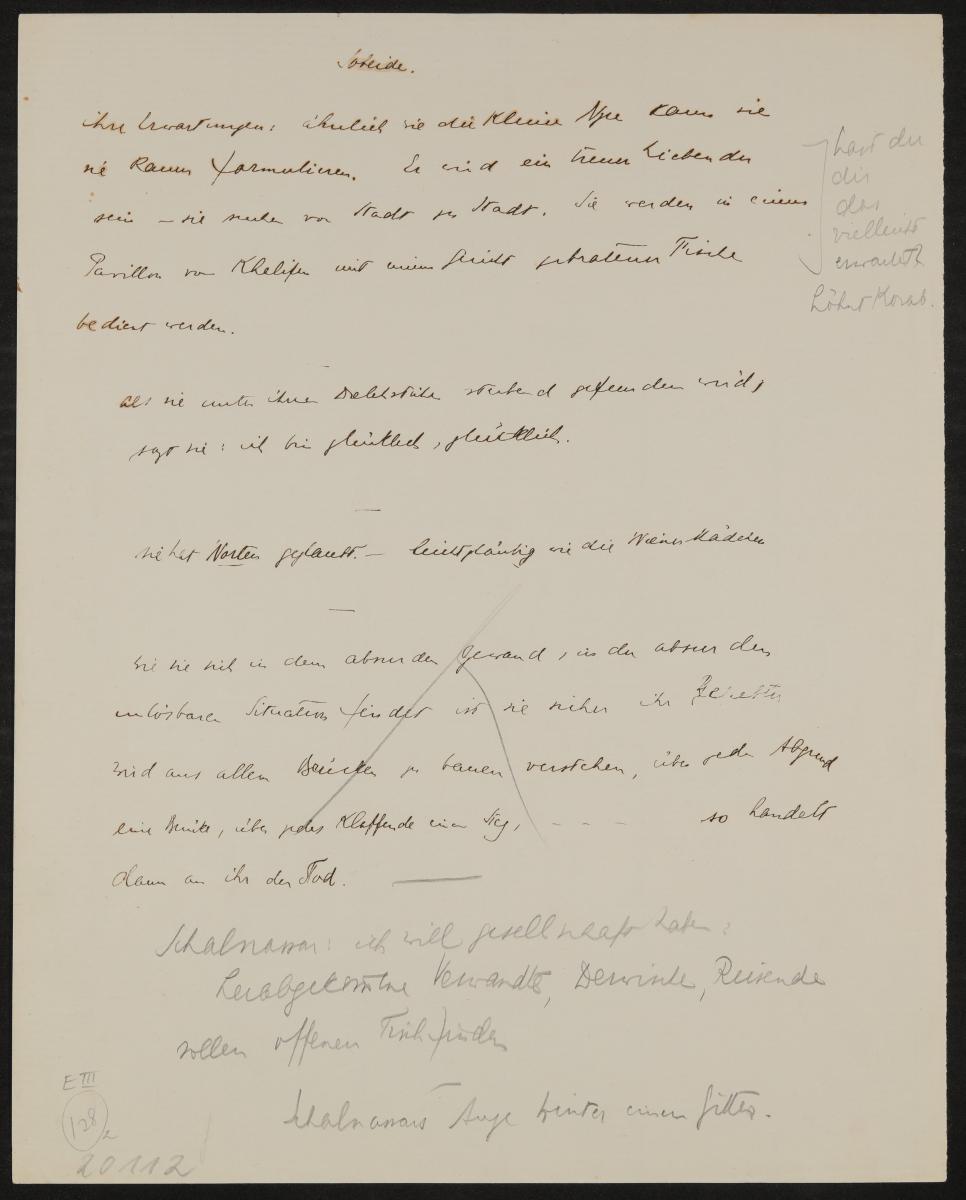 Sobeide.
ihre Erwartungen: ähnlich wie die kleine kann sie
sie kaum formulieren. Er wird ein treuer Liebender
sein – sie von Stadt zu Stadt. Sie werden in einem
Pavillon vom Khalifen mit einem Gericht gebratener Fische
bedient werden.
hast du
dir
das
vielleicht
erwartet?
höhnt Korab.
als sie unter ihrer sterbend gefunden wird,
sagt sie: ich bin glücklich, glücklich.
—
sie hat Worten geglaubt. – leichtgläubig wie die Wiener Mädchen
—
wie sie sich in dem absurden Gewand, in der absurden
unlösbaren Situation findet ist sie sicher ihr
wird aus allem Brücken zu bauen verstehen, über jeden Abgrund
eine Brücke, über jedes Klaffende einen Steg, – – – so handelt
dann an ihr der Tod. —
Schalnassar: ich will gesellschaft haben:
herabgekommne Verwandte, Derwische, Reisende
sollen offenen Tisch finden
—
Schalnassars Auge hinter einem Gitter.
E III
128
2
20112